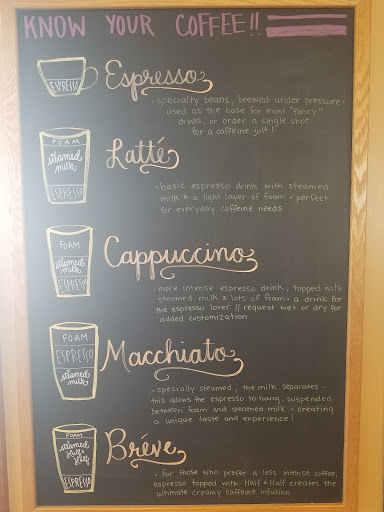 KNOW YOUR COFFEE!!
ESPRESSO
Espresso
• specialty beans, brewed under pressure -
used as the base for most "fancy"
drinks, or order a single shot
for a caffeine jolt!
FOAM
steamed
milk
ESPRESSO
Latté
• basic espresso drink with steamed
milk & a light layer of foam • perfect
for everyday caffeine needs
FOAM
steamed
milk
ESPRESSO
Cappuccino
• more intense espresso drink, topped with
steamed milk & lots of foam • a drink for
the espresso lover // request wet or dry for
added customization
FOAM
ESPRESSO
steamed
milk
Macchiato
• specially steamed, the milk separates -
this allows the espresso to hang, suspended
between foam and steamed milk - creating
a unique taste and experience!
FOAM
steamed
Half &
Half
ESPRESSO
Bréve
• for those who prefer a less intense coffee,
espresso topped with Half & Half creates the
ultimate creamy caffeine infusion